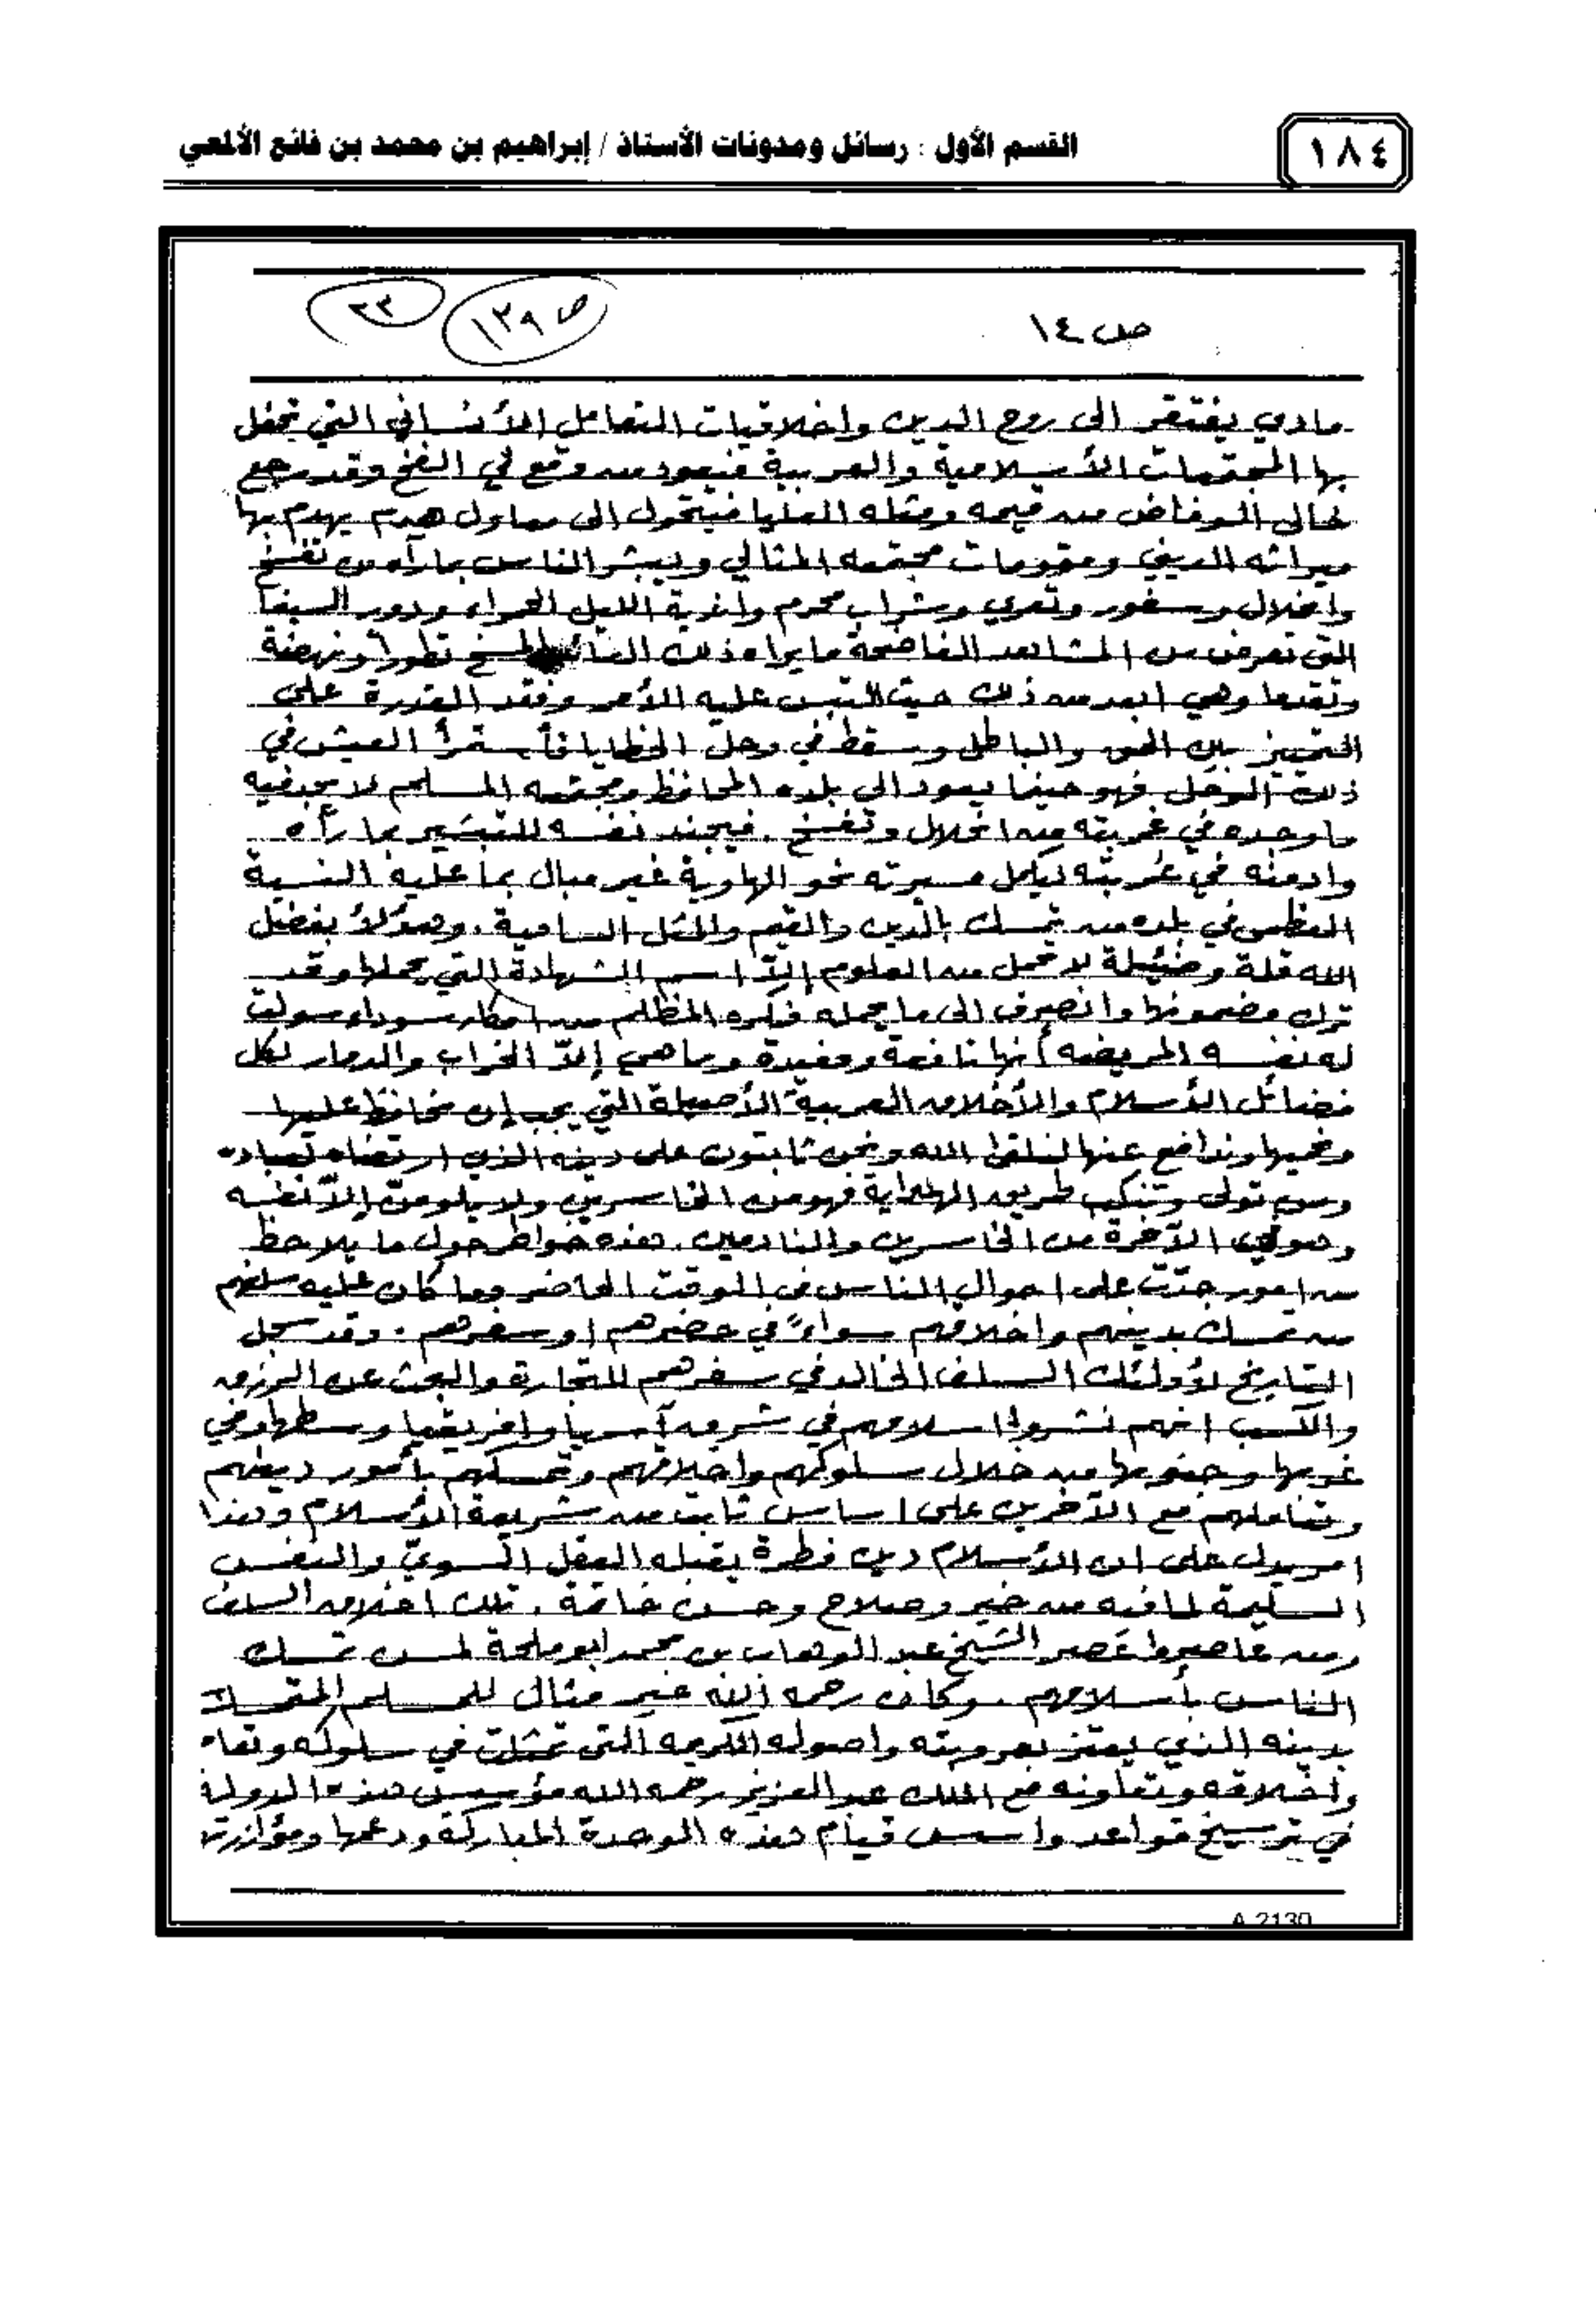 ١٨٤
القسم الأول : رسائل ومدونات الأستاذ / إبراهيم بن محمد بن فائع الألمعي
ص ١٤
ص ١٣٩
٢٣
مادي يفتقر الى روح الدين واخلاقيات التعامل الأنساني التي تحفل
بها المجتمعات الأسلامية والعربية فيعود من وقع في الفخ وقد رجع
خالي الوفاض من قيمه ومثله العليا فيتحول الى معاول هدم يهدم بها
ميراثه الديني ومقومات مجتمعه المثالي ويبشر الناس بما رآه من تفسخ
وانحلال وسفور وتعري وشراب محرم واندية الليل الحمراء ودور السينما
التي تعرض من المشاهد الفاضحة ما يراه ذلك المسخ تطوراً ونهضة
وتقدما وهي ابعد من ذلك حيث التبس عليه الأمر وفقد القدرة على
التمييز بين الحق والباطل وسقط في وحل الخطايا فأستمرأ العيش في
ذلك الوحل فهو حينما يعود الى بلده المحافظ ومجتمعه المسلم لا يجد فيه
ما وجده في غربته من انحلال وتفسخ . فيجند نفسه للتبشير بما رأه
وادمنه في غربته ليكمل مسيرته نحو الهاوية غير مبال بما عليه النسبة
العظمى في بلده من تمسك بالدين والقيم والمثل السامية . وهؤلأ بفضل
الله قلة وضئيلة لا تحمل من العلوم إلاّ اسم الشهادة التي يحملها وقد
ترك مضمونها وانصرف الى ما يحمله فكره المظلم من افكار سوداء سولت
له نفسه المريضه أنها نافعة ومفيدة وما هي إلاّ الخراب والدمار لكل
فضائل الأسلام والأخلاق العربية الأصيلة التي يجب ان نحافظ عليها
ونحميها وندافع عنها لنلقى الله ونحن ثابتون على دينه الذي ارتضاه لعباده
ومن تولى وتنكب طريق الهداية فهو من الخاسرين ولا يلومنّ إلاّ نفسه
وهو في الآخرة من الخاسرين والنادمين . هذه خواطر حول ما يلاحظ
من امور جدّت على احوال الناس في الوقت الحاضر وما كان عليه سلفهم
من تمسك بدينهم واخلاقهم سواءً في حضرهم او سفرهم . وقد سجل
التاريخ لأولئك السلف الخالد في سفرهم للتجارة والبحث عن الرزق
والكسب انهم نشروا اسلامهم في شرق آسيا وافريقيا وسطها وفي
غربها وجنوبها من خلال سلوكهم واخلاقهم وتمسكهم بأمور دينهم
وتعاملهم مع الآخرين على اساس ثابت من شريعة الأسلام وهذا
امر يدل على ان الأسلام دين فطرة يقبله العقل السويّ والنفس
السليمة لما فيه من خير وصلاح وحسن خاتمة . تلك اخلاق السلف
ومن عاصروا عصر الشيخ عبد الوهاب بن محمد ابو ملحة لمسن تمسك
الناس بأسلامهم . وكان رحمه الله خير مثال للمسلم المتمسك
بدينه الذي يعتز بعروبته واصوله الكريمه التي تمثلت في سلوكه ونقاء
واخلاقه وتعاونه مع الملك عبد العزيز رحمه الله مؤسس هذه الدولة
في ترسيخ قواعد واسس قيام هذه الوحدة المباركة ودعمها ومؤازرتها
A 2130